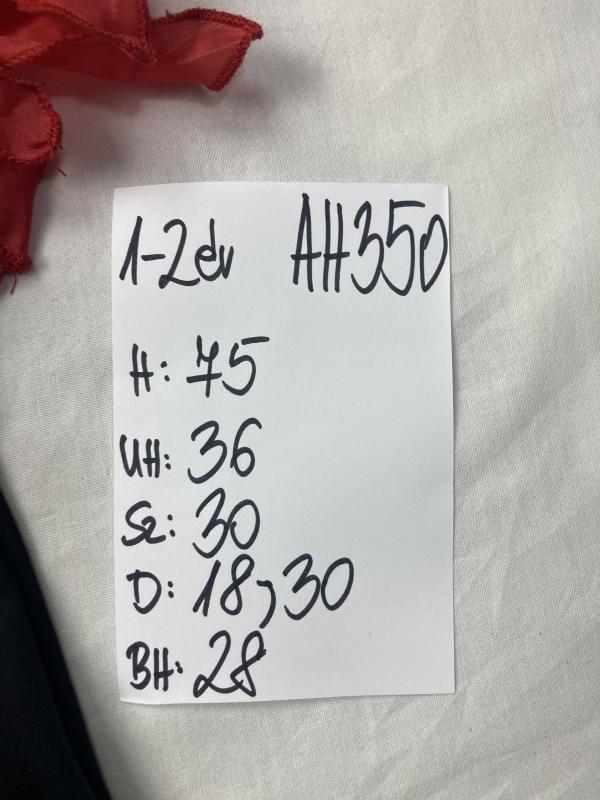 1-2 év AH350
H: 75
UH: 36
Sz: 30
D: 18,30
BH: 28